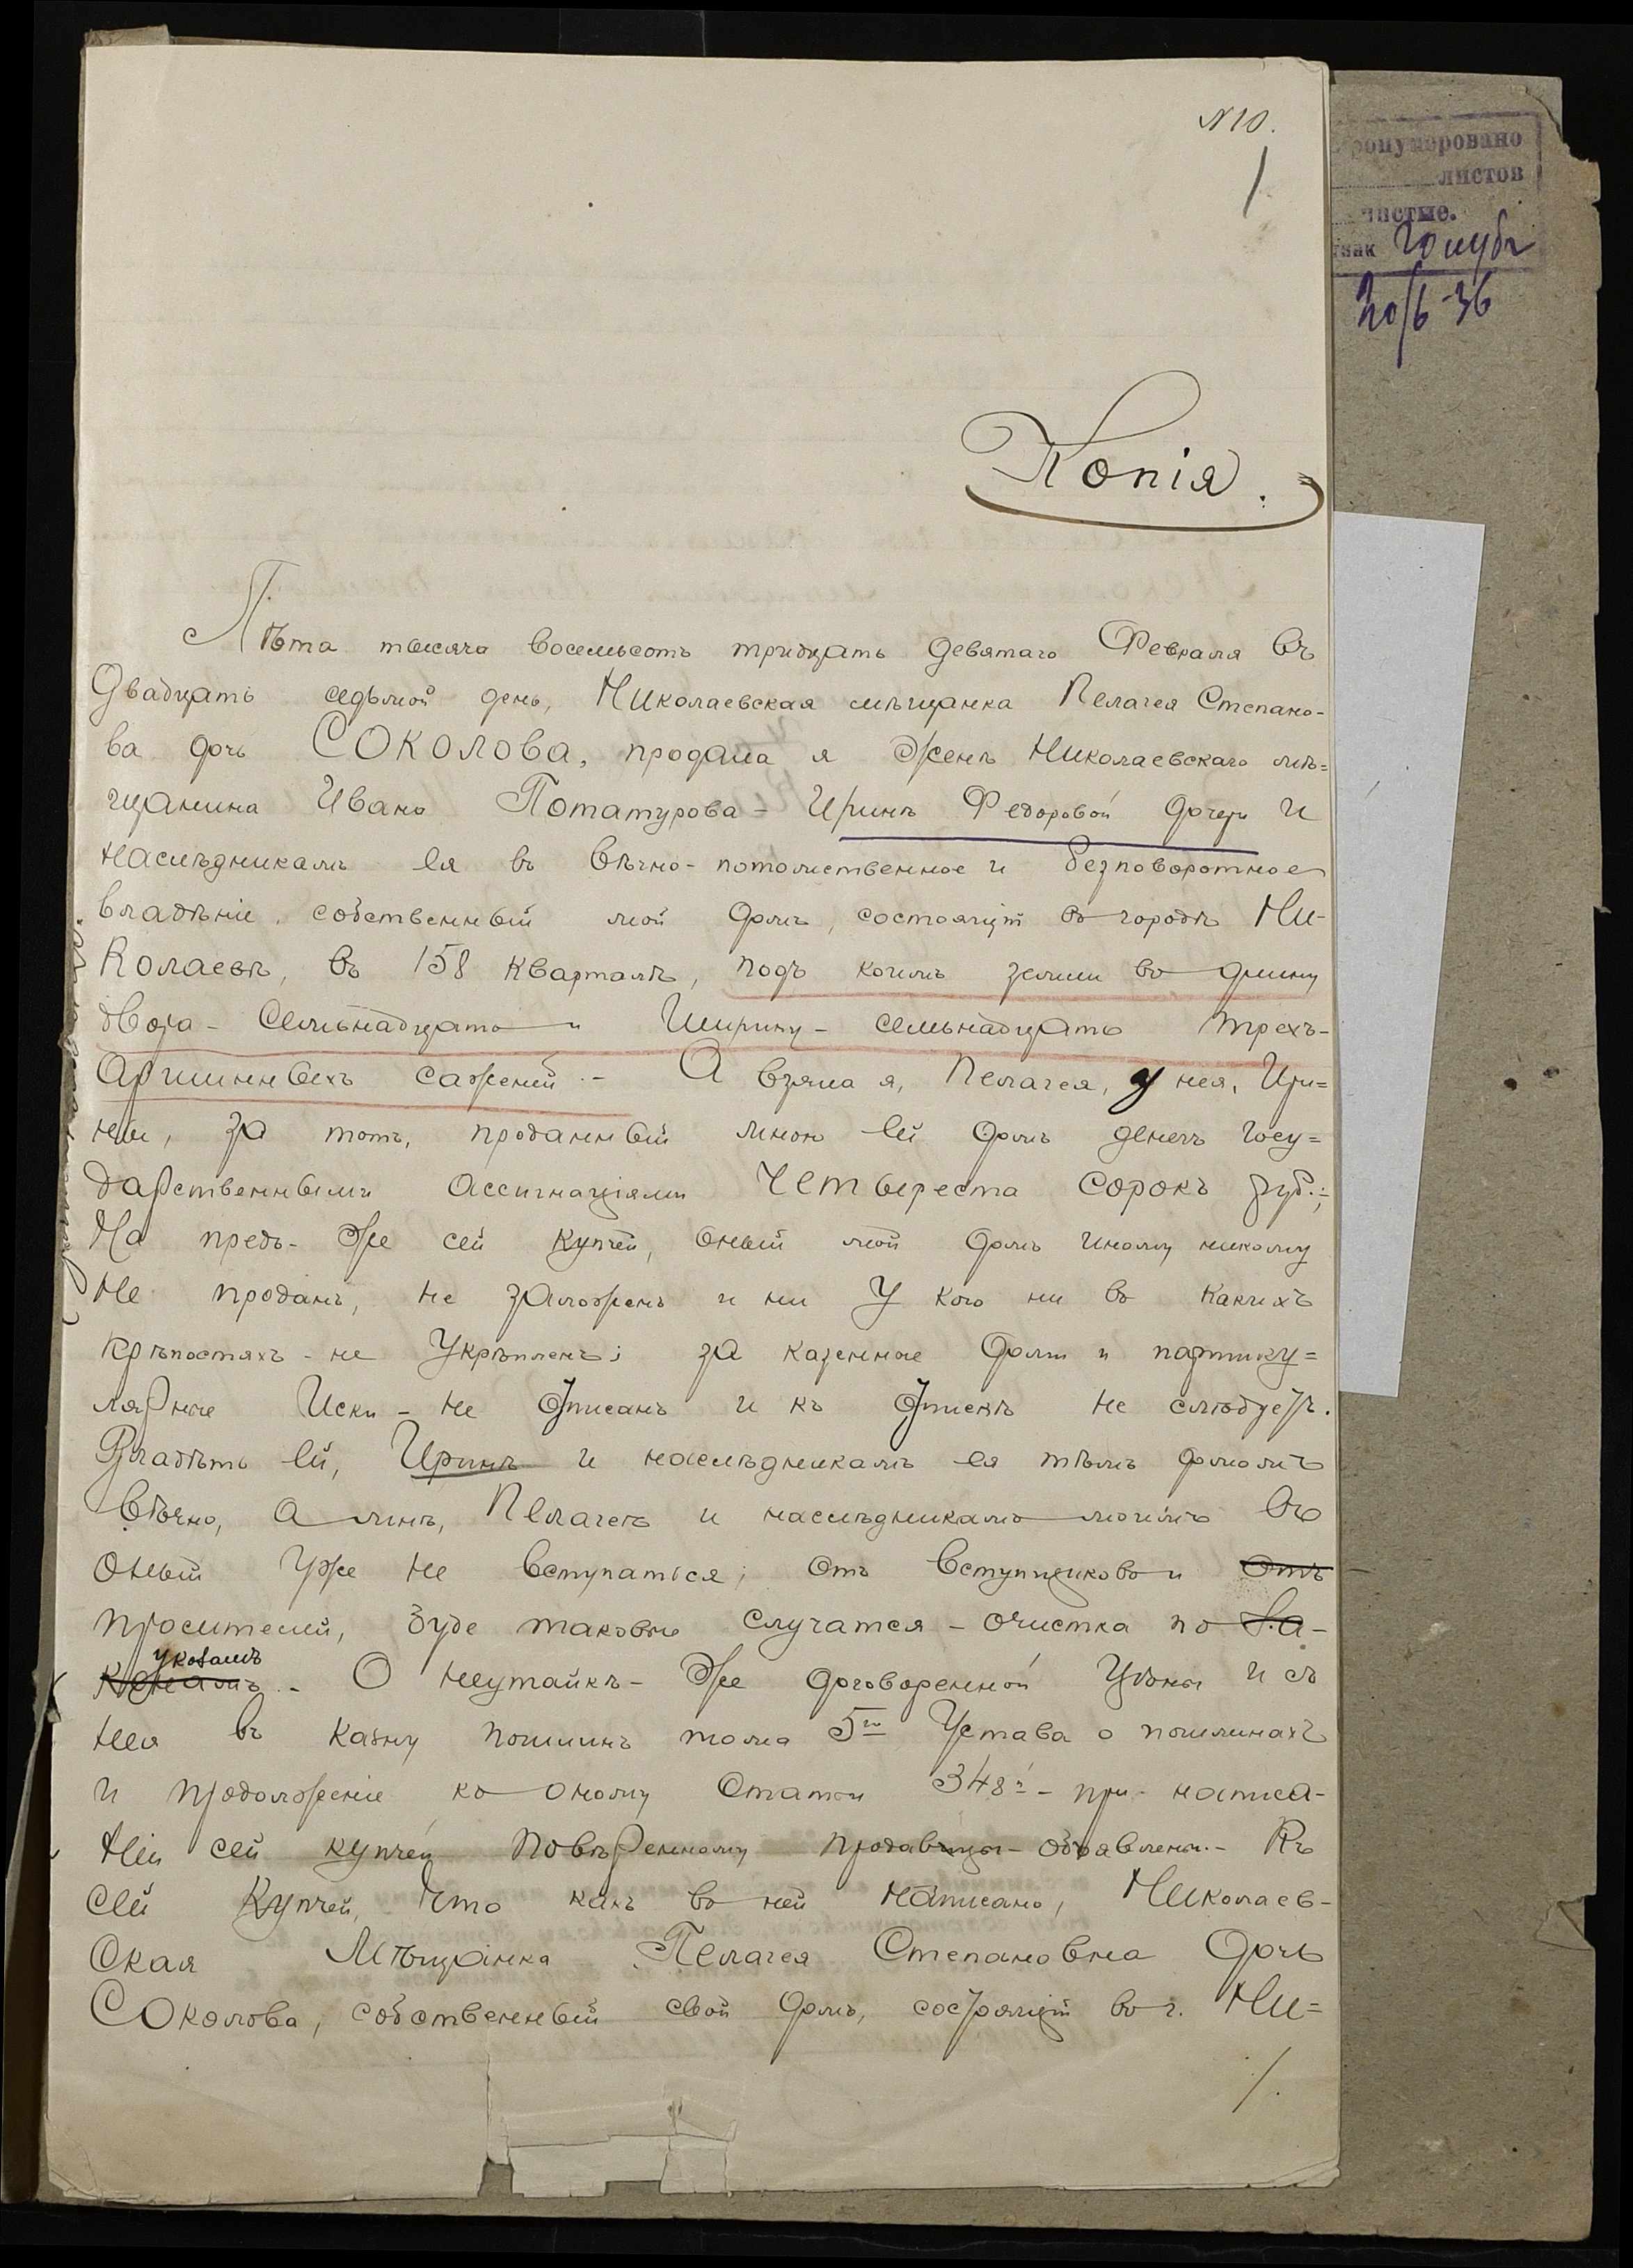 N 10.
1
пронумеровано
листов
чистые.
Голубь
20/6-36
Копія.
Лѣта тысяча восемьсотъ тридцать девятаго Февраля въ
двадцать седьмой день, Николаевская мѣщанка Пелагея Степано-
ва дочь СОКОЛОВА, продала я женѣ Николаевскаго мѣ=
щанина Ивана Потатурова - Иринѣ Федоровой дочери и
наслѣдникамъ ея въ вѣчно-потомственное и безповоротное
владѣніе, собственный мой домъ, состоящій въ городѣ Ни-
колаевѣ, въ 158 кварталѣ, подъ коимъ земли въ длину
двора - семьнадцать и ширину - семьнадцать трехъ-
аршинныхъ саженей. - А взяла я, Пелагея, у нея, Ири=
ны, за тотъ, проданный мною ей домъ денегъ госу=
дарственными ассигнаціями четыреста сорокъ руб.;
На предъ-же сей купчей, оный мой домъ иному никому
не проданъ, не заложенъ и ни у кого ни въ какихъ
крѣпостяхъ - не укрѣпленъ; за казенные долги и партику=
лярные иски - не описанъ и къ описи не слѣдуетъ.
Владѣть ей, Иринѣ и наслѣдникамъ ея тѣмъ домомъ
вѣчно, а мнѣ, Пелагеѣ и наслѣдникамъ моимъ въ
оный уже не вступаться; отъ вступщиковъ и отъ
просителей, буде таковые случатся - очистка по За-
конамъ указамъ. - О неутайкѣ-же договоренной цѣны и съ
нея въ казну пошлинъ тома 5го Устава о пошлинахъ
и продолженіе къ оному статьи 348й - при написа-
ніи сей купчей повѣренному продавицы - объявлены. - Къ
сей купчей, что какъ въ ней написано, Николаев-
ская Мѣщанка Пелагея Степановна дочь
Соколова, собственный свой домъ, состоящій въ г. Ни=